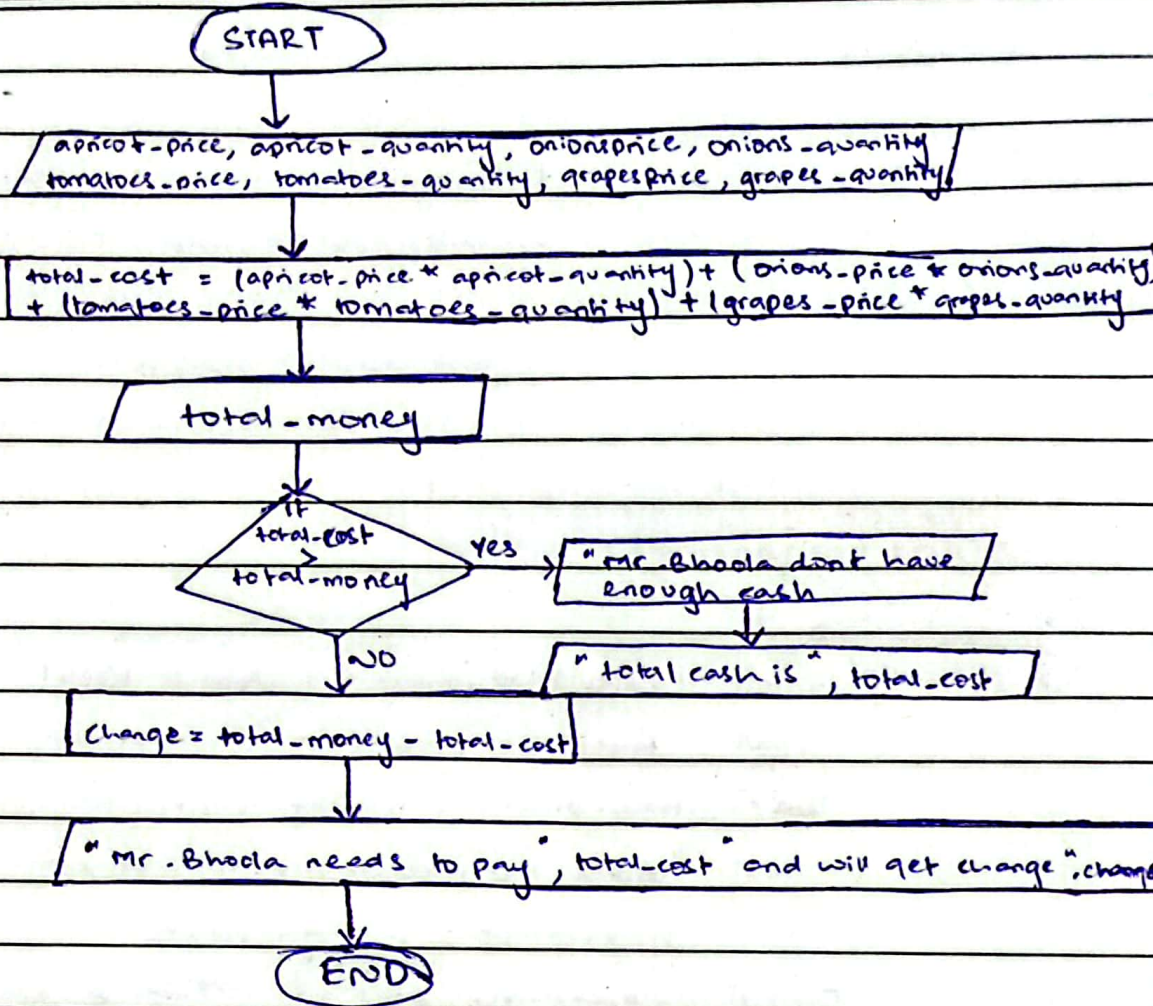 START
apricot-price, apricot-quantity, onionsprice, onions-quantity
tomatoes-price, tomatoes-quantity, grapesprice, grapes-quantity.
total-cost = (apricot-price * apricot-quantity) + (onions-price * onions-quantity)
+ (tomatoes-price * tomatoes-quantity) + (grapes-price * grapes-quantity
total-money
If
total-cost
>
total-money
Yes
"Mr. Bhoola dont have
enough cash
"total cash is", total-cost
NO
change = total-money - total-cost
"Mr. Bhoola needs to pay", total-cost "and will get change", change
END